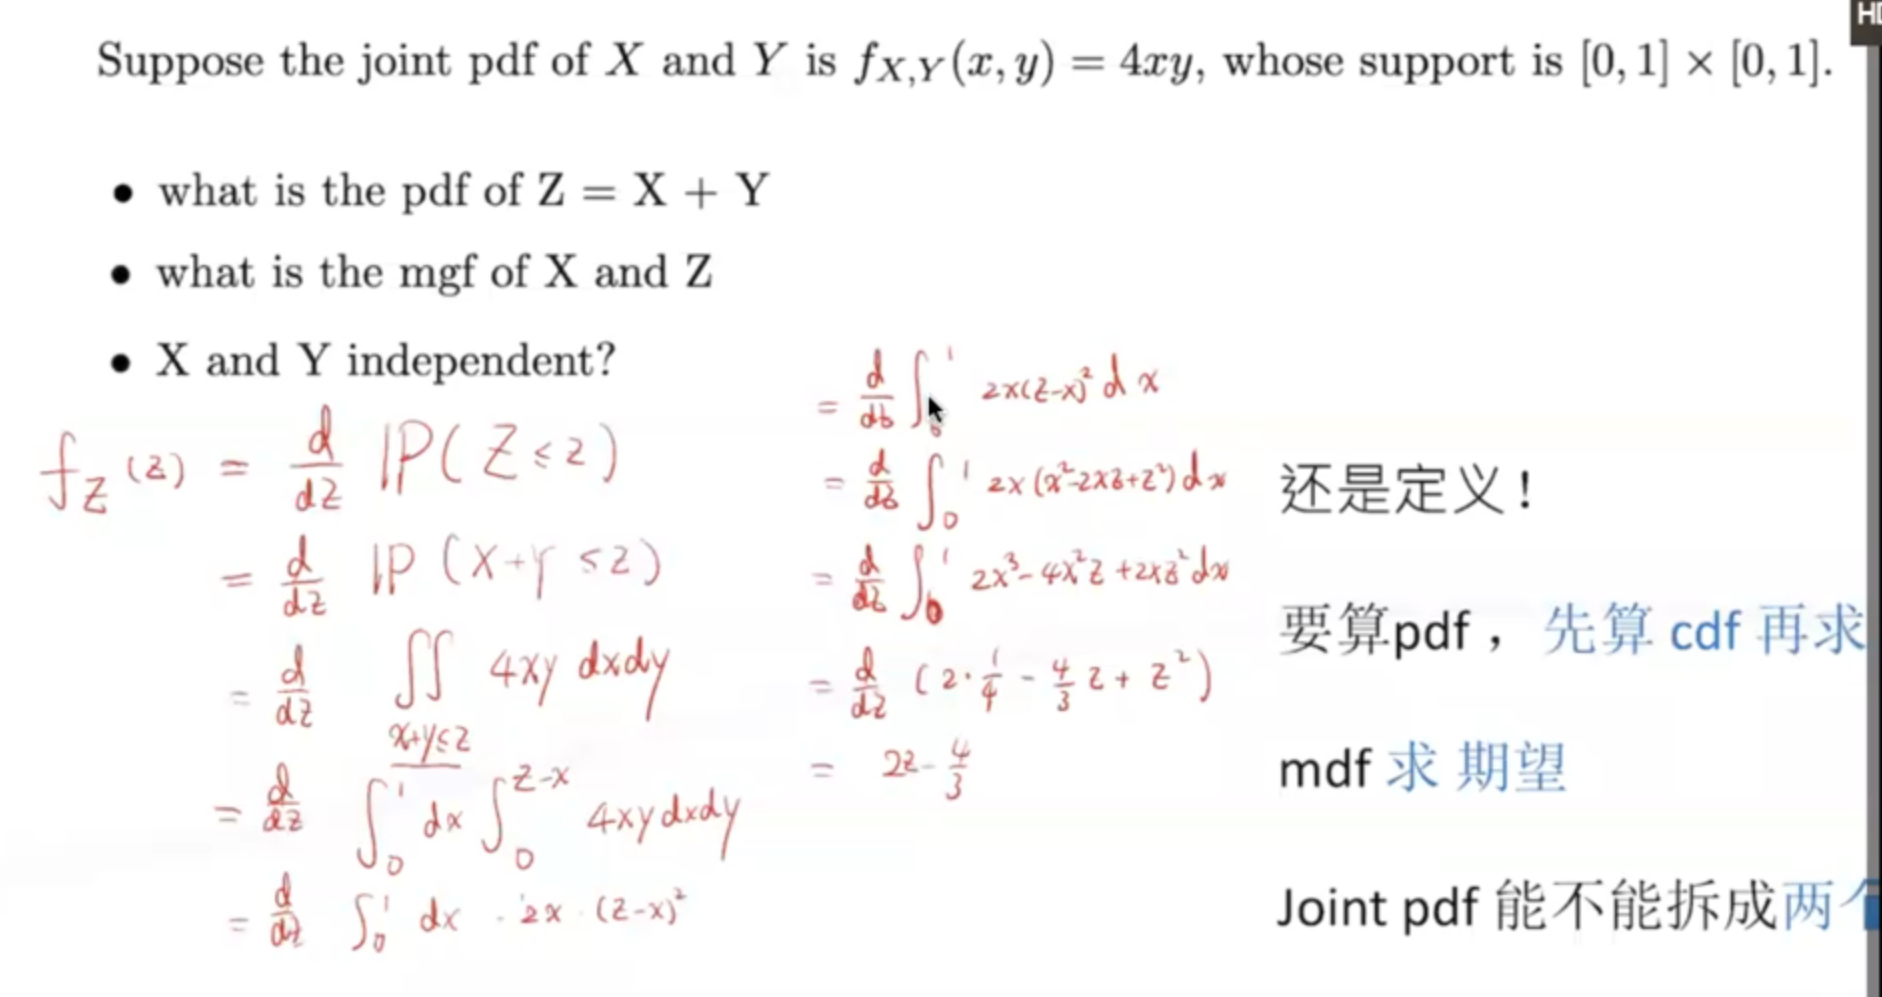 HD
Suppose the joint pdf of X and Y is f_{X,Y}(x, y) = 4xy, whose support is [0, 1] × [0, 1].
• what is the pdf of Z = X + Y
• what is the mgf of X and Z
• X and Y independent?
f_Z(z) = d/dz ℙ(Z ≤ z)
= d/dz ℙ(X+Y ≤ z)
= d/dz ∬_{x+y≤z} 4xy dxdy
= d/dz ∫_0^1 dx ∫_0^{z-x} 4xy dxdy
= d/dz ∫_0^1 dx · 2x · (z-x)²
= d/dz ∫_0^1 2x(z-x)² dx
= d/dz ∫_0^1 2x(x²-2xz+z²) dx
= d/dz ∫_0^1 2x³-4x²z+2xz² dx
= d/dz (2·1/4 - 4/3 z + z²)
= 2z - 4/3
还是定义！
要算pdf，先算 cdf 再求
mdf 求 期望
Joint pdf 能不能拆成两个